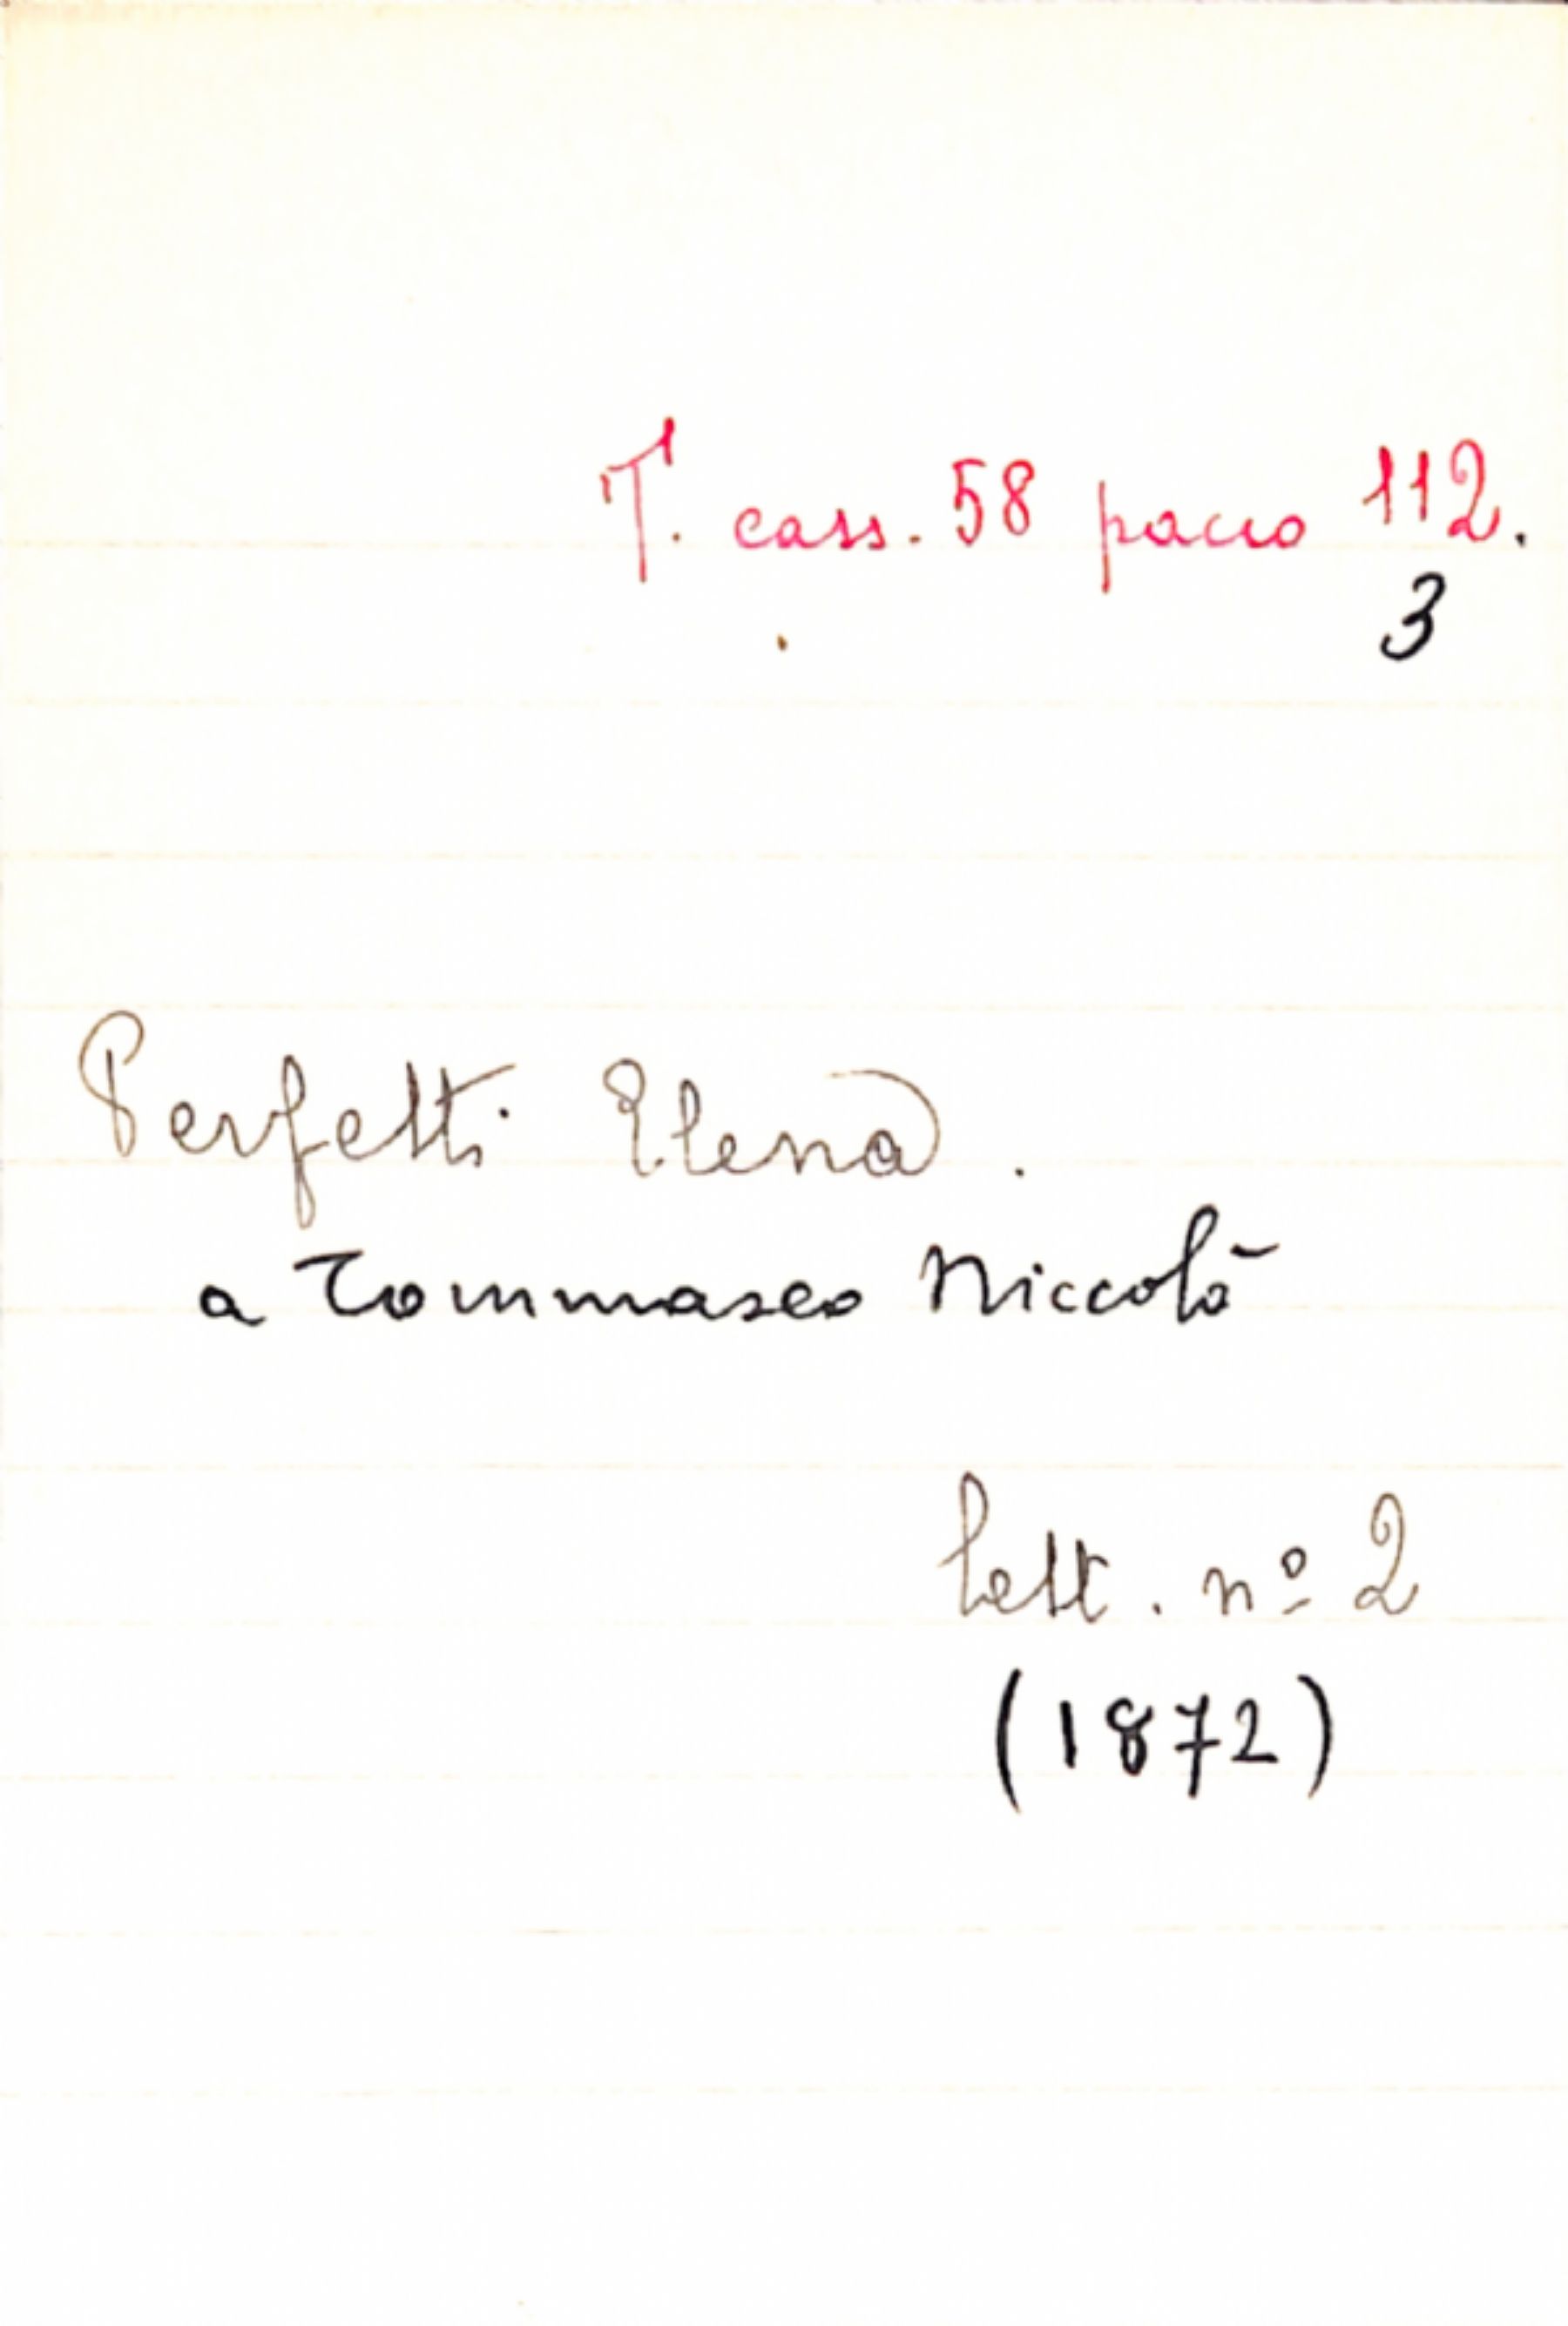 T. cass. 58 pacco 112.
3
Perfetti Elena.
a Tommaseo Niccolò
lett. nº 2
(1872)